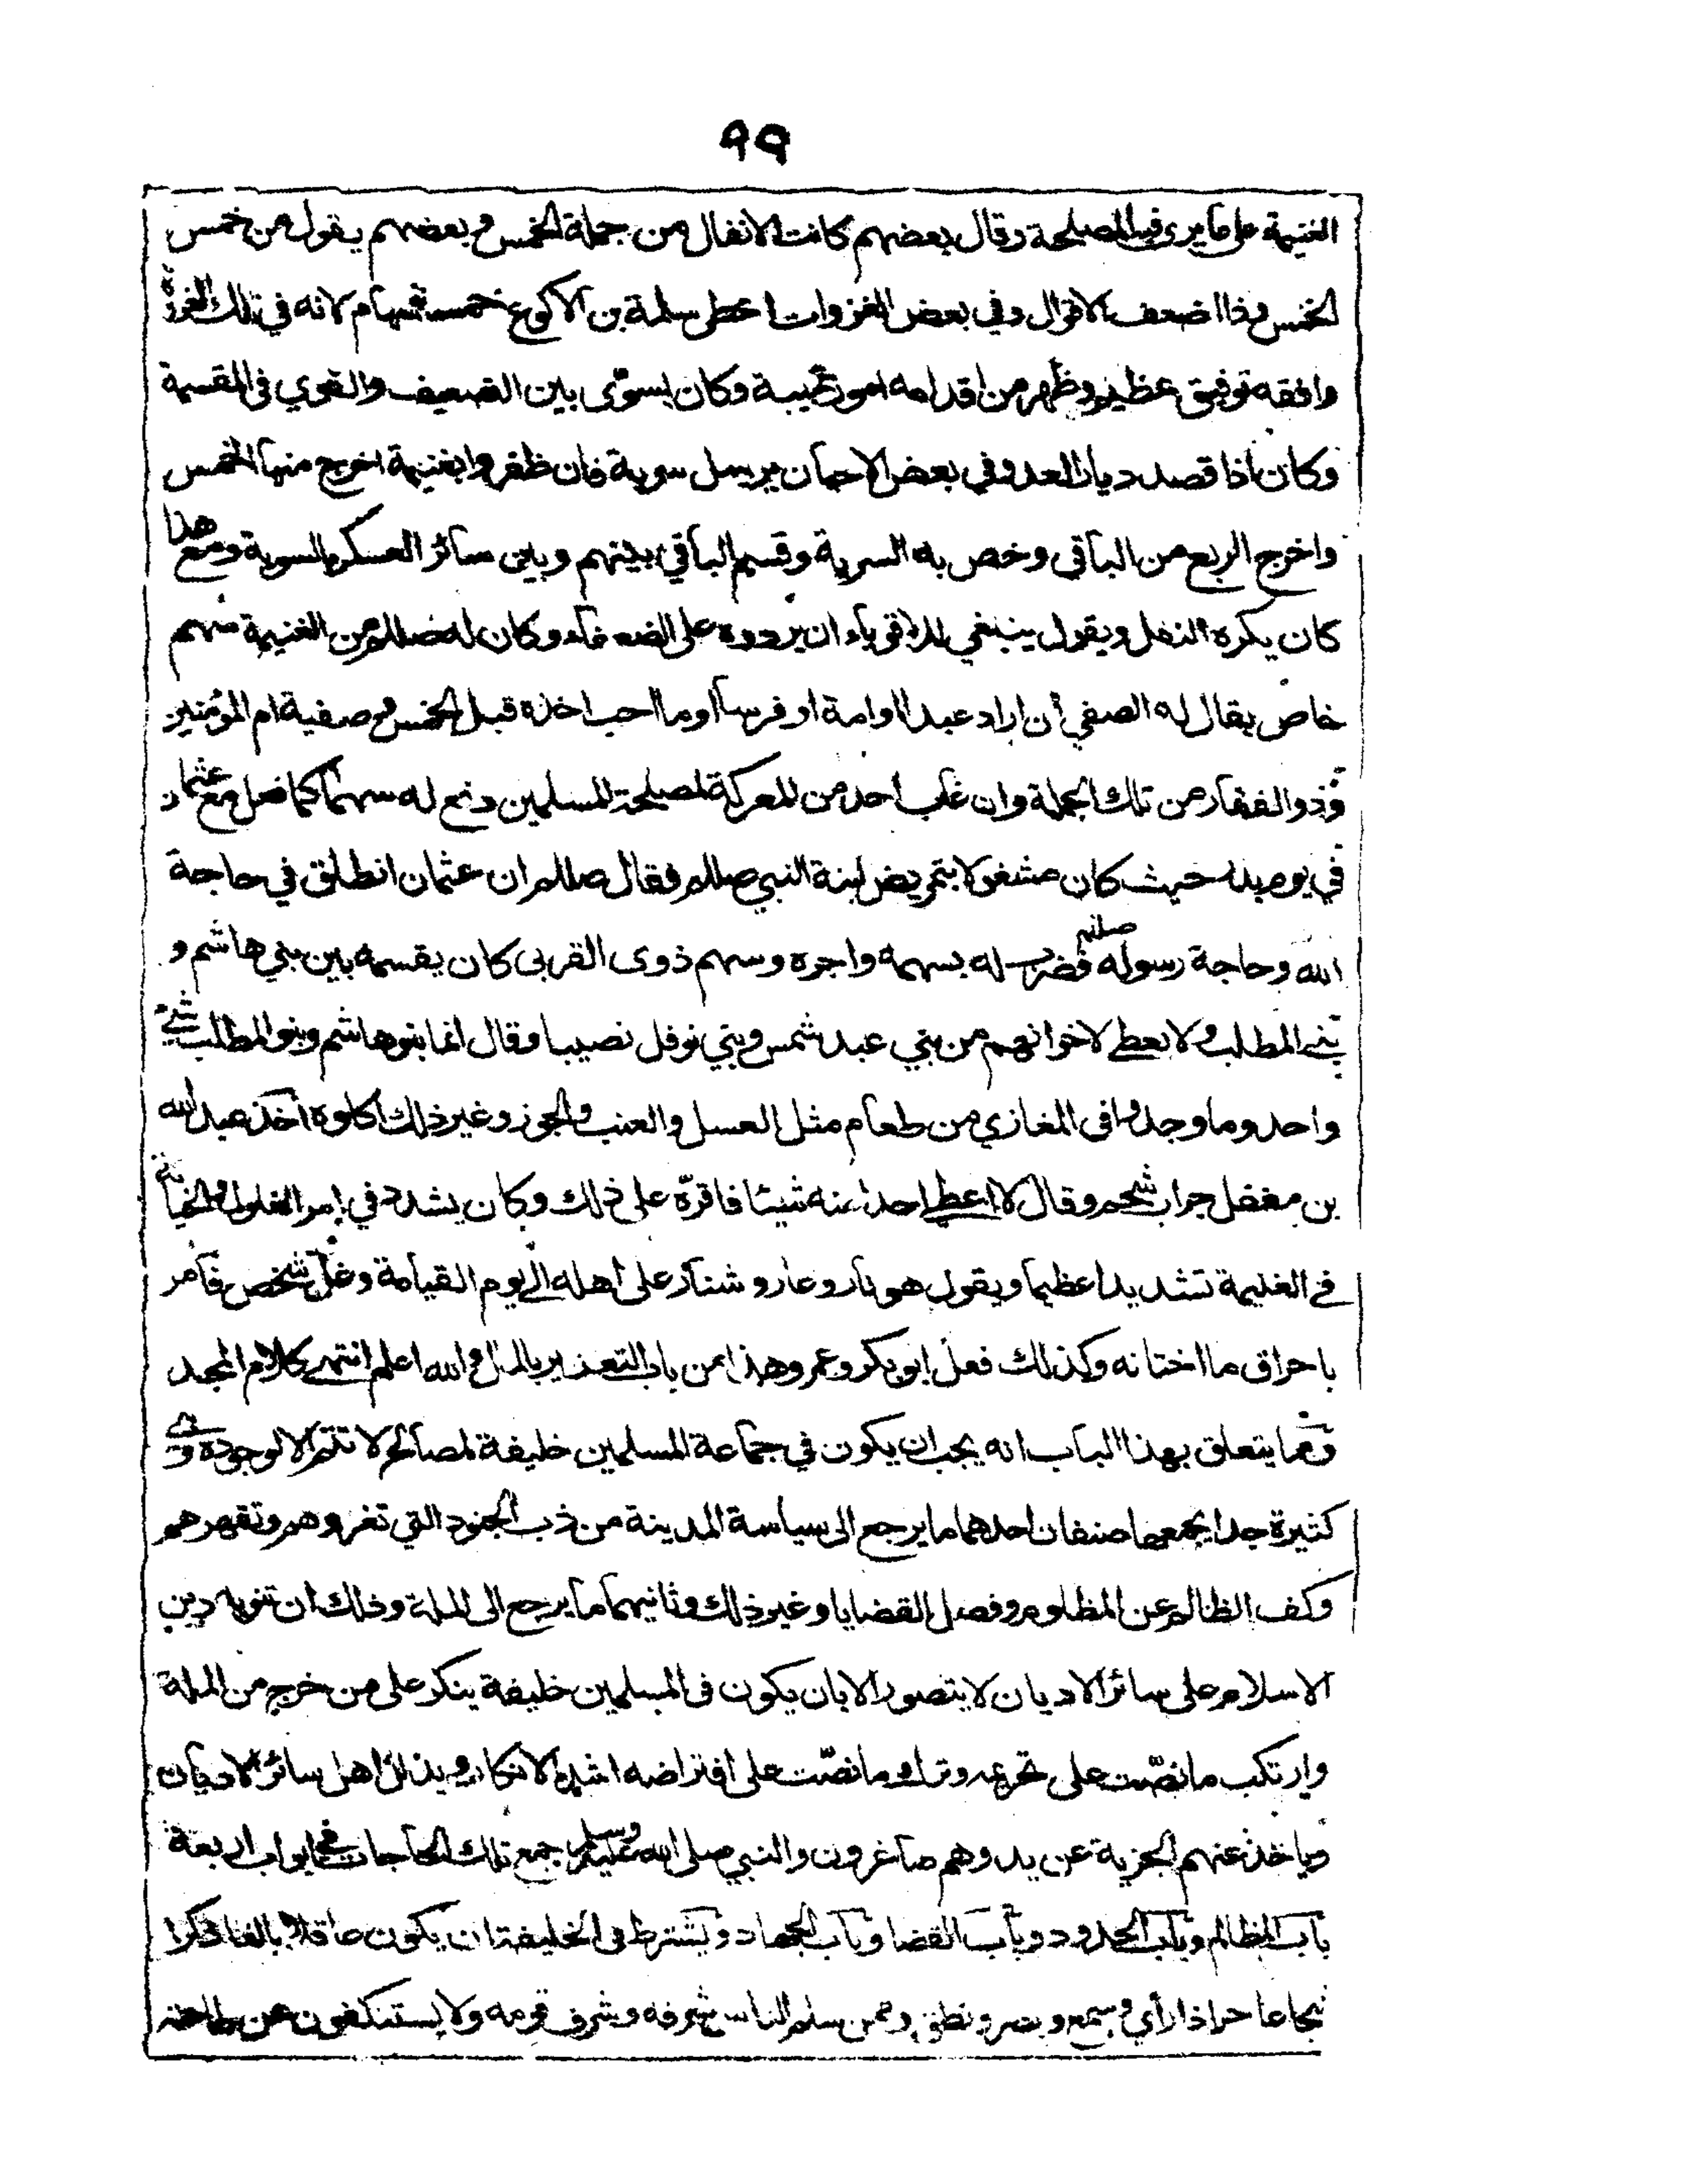 ٩٩
الغنيمة على ما يرى فيه المصلحة وقال بعضهم كانت الانفال من جملة الخمس وبعضهم يقول من خمس
الخمس وذا اضعف الاقوال وفي بعض الغزوات اعطى سلمة بن الاكوع خمسة سهام لانه في تلك الغزوة
وافقه توفيق عظيم وظهر من اقدامه امور عجيبة وكان يسوّى بين الضعيف والقوي فى القسمة
وكان اذا قصد ديار العدو في بعض الاحيان يرسل سرية فان ظفروا بغنيمة اخرج منها الخمس
واخرج الربع من الباقي وخص به السرية وقسم الباقي بينهم وبين سائر العسكر بالسوية ومع هذا
كان يكره النفل ويقول ينبغي للاقوياء ان يردوه على الضعفاء وكان له صللم من الغنيمة سهم
خاص يقال له الصفي ان اراد عبدا او امة او فرسا او ما احب اخذه قبل الخمس وصفية ام المؤمنين
وذو الفقار من تلك الجملة وان غاب احد من المعركة لمصلحة المسلمين دفع له سهما كما فعل مع عثمان
في يوم بدر حيث كان مشغولا بتمريض ابنة النبي صللم فقال صللم ان عثمان انطلق في حاجة
الله وحاجة رسوله صللم فضرب له بسهمه واجره وسهم ذوى القربى كان يقسمه بين بني هاشم و
بني المطلب ولا يعطي لاخوانهم من بني عبد شمس وبني نوفل نصيبا وقال انما بنو هاشم وبنو المطلب شيء
واحد وما وجدوا فى المغازي من طعام مثل العسل والعنب والجوز وغير ذلك اكلوه اخذ عبد الله
بن مغفل جراب شحم وقال لا اعطي احدا منه شيئا فاقرّه على ذلك وكان يشدد في امر الغلول والخيانة
في الغنيمة تشديدا عظيما ويقول هو نار وعار وشنار على اهله الى يوم القيامة وغل شخص فامر
باحراق ما اختانه وكذلك فعل ابو بكر وعمر وهذا من باب التعذير بالمال والله اعلم انتهى كلام المجد
ومما يتعلق بهذا الباب انه يجب ان يكون في جماعة المسلمين خليفة لمصالح لا تتم الا لوجوده وهي
كثيرة جدا يجمعها صنفان احدهما ما يرجع الى سياسة المدينة من ذب الجنود التي تغزوهم وتقهرهم
وكف الظالم عن المظلوم وفصل القضايا وغير ذلك وثانيهما ما يرجع الى الملة وذلك ان تنويه دين
الاسلام على سائر الاديان لا يتصور الا بان يكون فى المسلمين خليفة ينكر على من خرج من الملة
وارتكب ما نصّت على تحريمه وترك ما نصّت على افتراضه اشد الانكار ويذلل اهل سائر الاديان
وياخذ عنهم الجزية عن يد وهم صاغرون والنبي صلى الله عليه وسلم جمع تلك الحاجات في ابواب اربعة
باب المظالم وباب الحدود وباب القضا وباب الجهاد ويشترط فى الخليفة ان يكون عاقلا بالغا ذكرا
شجاعا حرا ذا رأي وسمع وبصر ونطق وممن سلم الناس شرفه وشرف قومه ولا يستنكفون عن طاعته